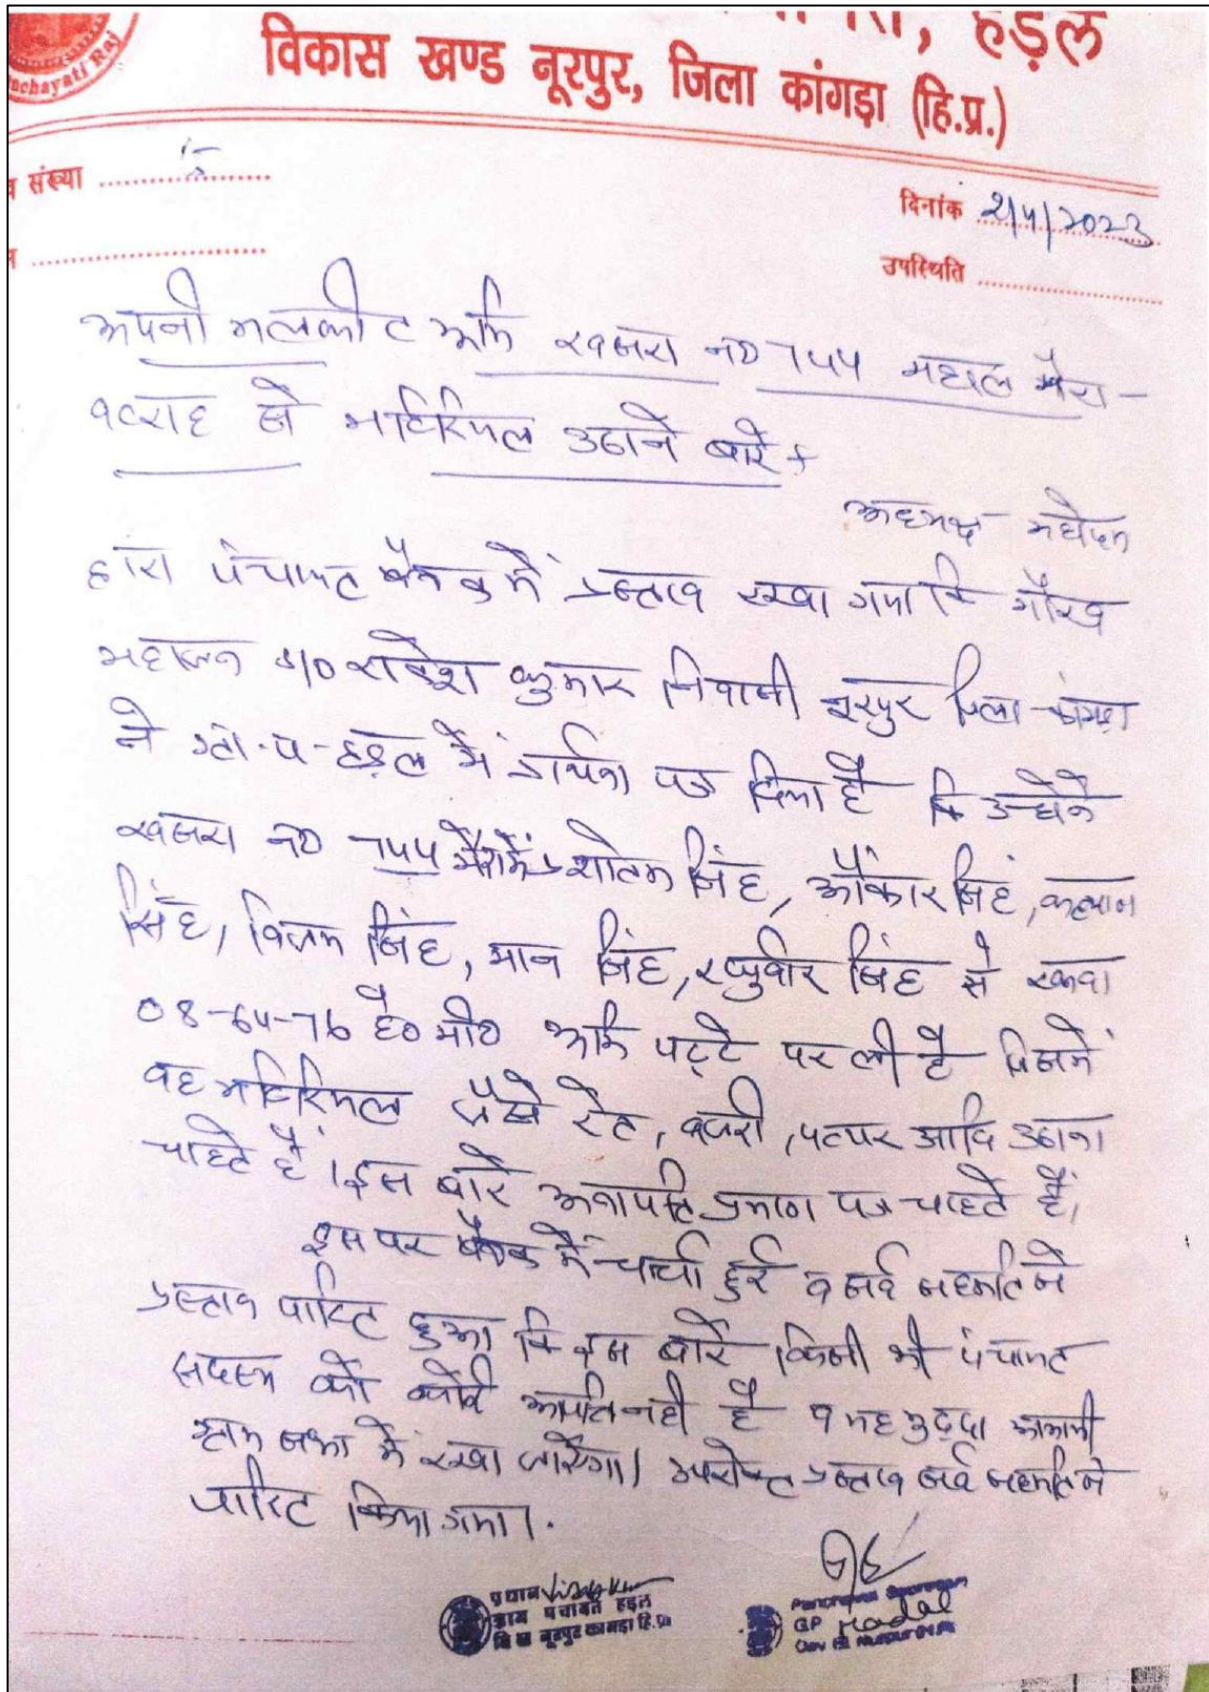 हड़ल
विकास खण्ड नूरपुर, जिला कांगड़ा (हि.प्र.)
nchayati Raj
संख्या ............ 5 ............
दिनांक 2/5/2023
उपस्थिति ............
अपनी मलकीत भूमि खसरा न० 744 महाल मैरा-
बटराह से मटिरियल उठाने बारे
अध्यक्ष महोदय
द्वारा पंचायत बैठक में प्रस्ताव रखा गया कि गौरव
महाजन S/O राकेश कुमार निवासी नूरपुर जिला कांगड़ा
ने ग्रा.प. हड़ल में प्रार्थना पत्र दिया है कि उन्होंने
खसरा न० 744 मैरा में प्रशोतम सिंह, ओंकार सिंह, कल्याण
सिंह, विजय सिंह, मान सिंह, रघुवीर सिंह से रकवा
08-64-76 है० मी० भूमि पट्टे पर ली है जिसमें
वह मटिरियल जैसे रेत, बजरी, पत्थर आदि उठाना
चाहते हैं। इस बारे अनापति प्रमाण पत्र चाहते हैं।
इस पर बैठक में चर्चा हुई व सर्व सहमति से
प्रस्ताव पारित हुआ कि इस बारे किसी भी पंचायत
सदस्य को कोई आपति नही है व यह मुद्दा आगामी
ग्राम सभा में रखा जाऐगा। उपरोक्त प्रस्ताव सर्व सहमति से
पारित किया गया।
प्रधान
ग्राम पंचायत हड़ल
वि ख नूरपुर कांगड़ा हि.प्र.
Panchayat Secretary
GP Hadal
Dev Bl Nurpur